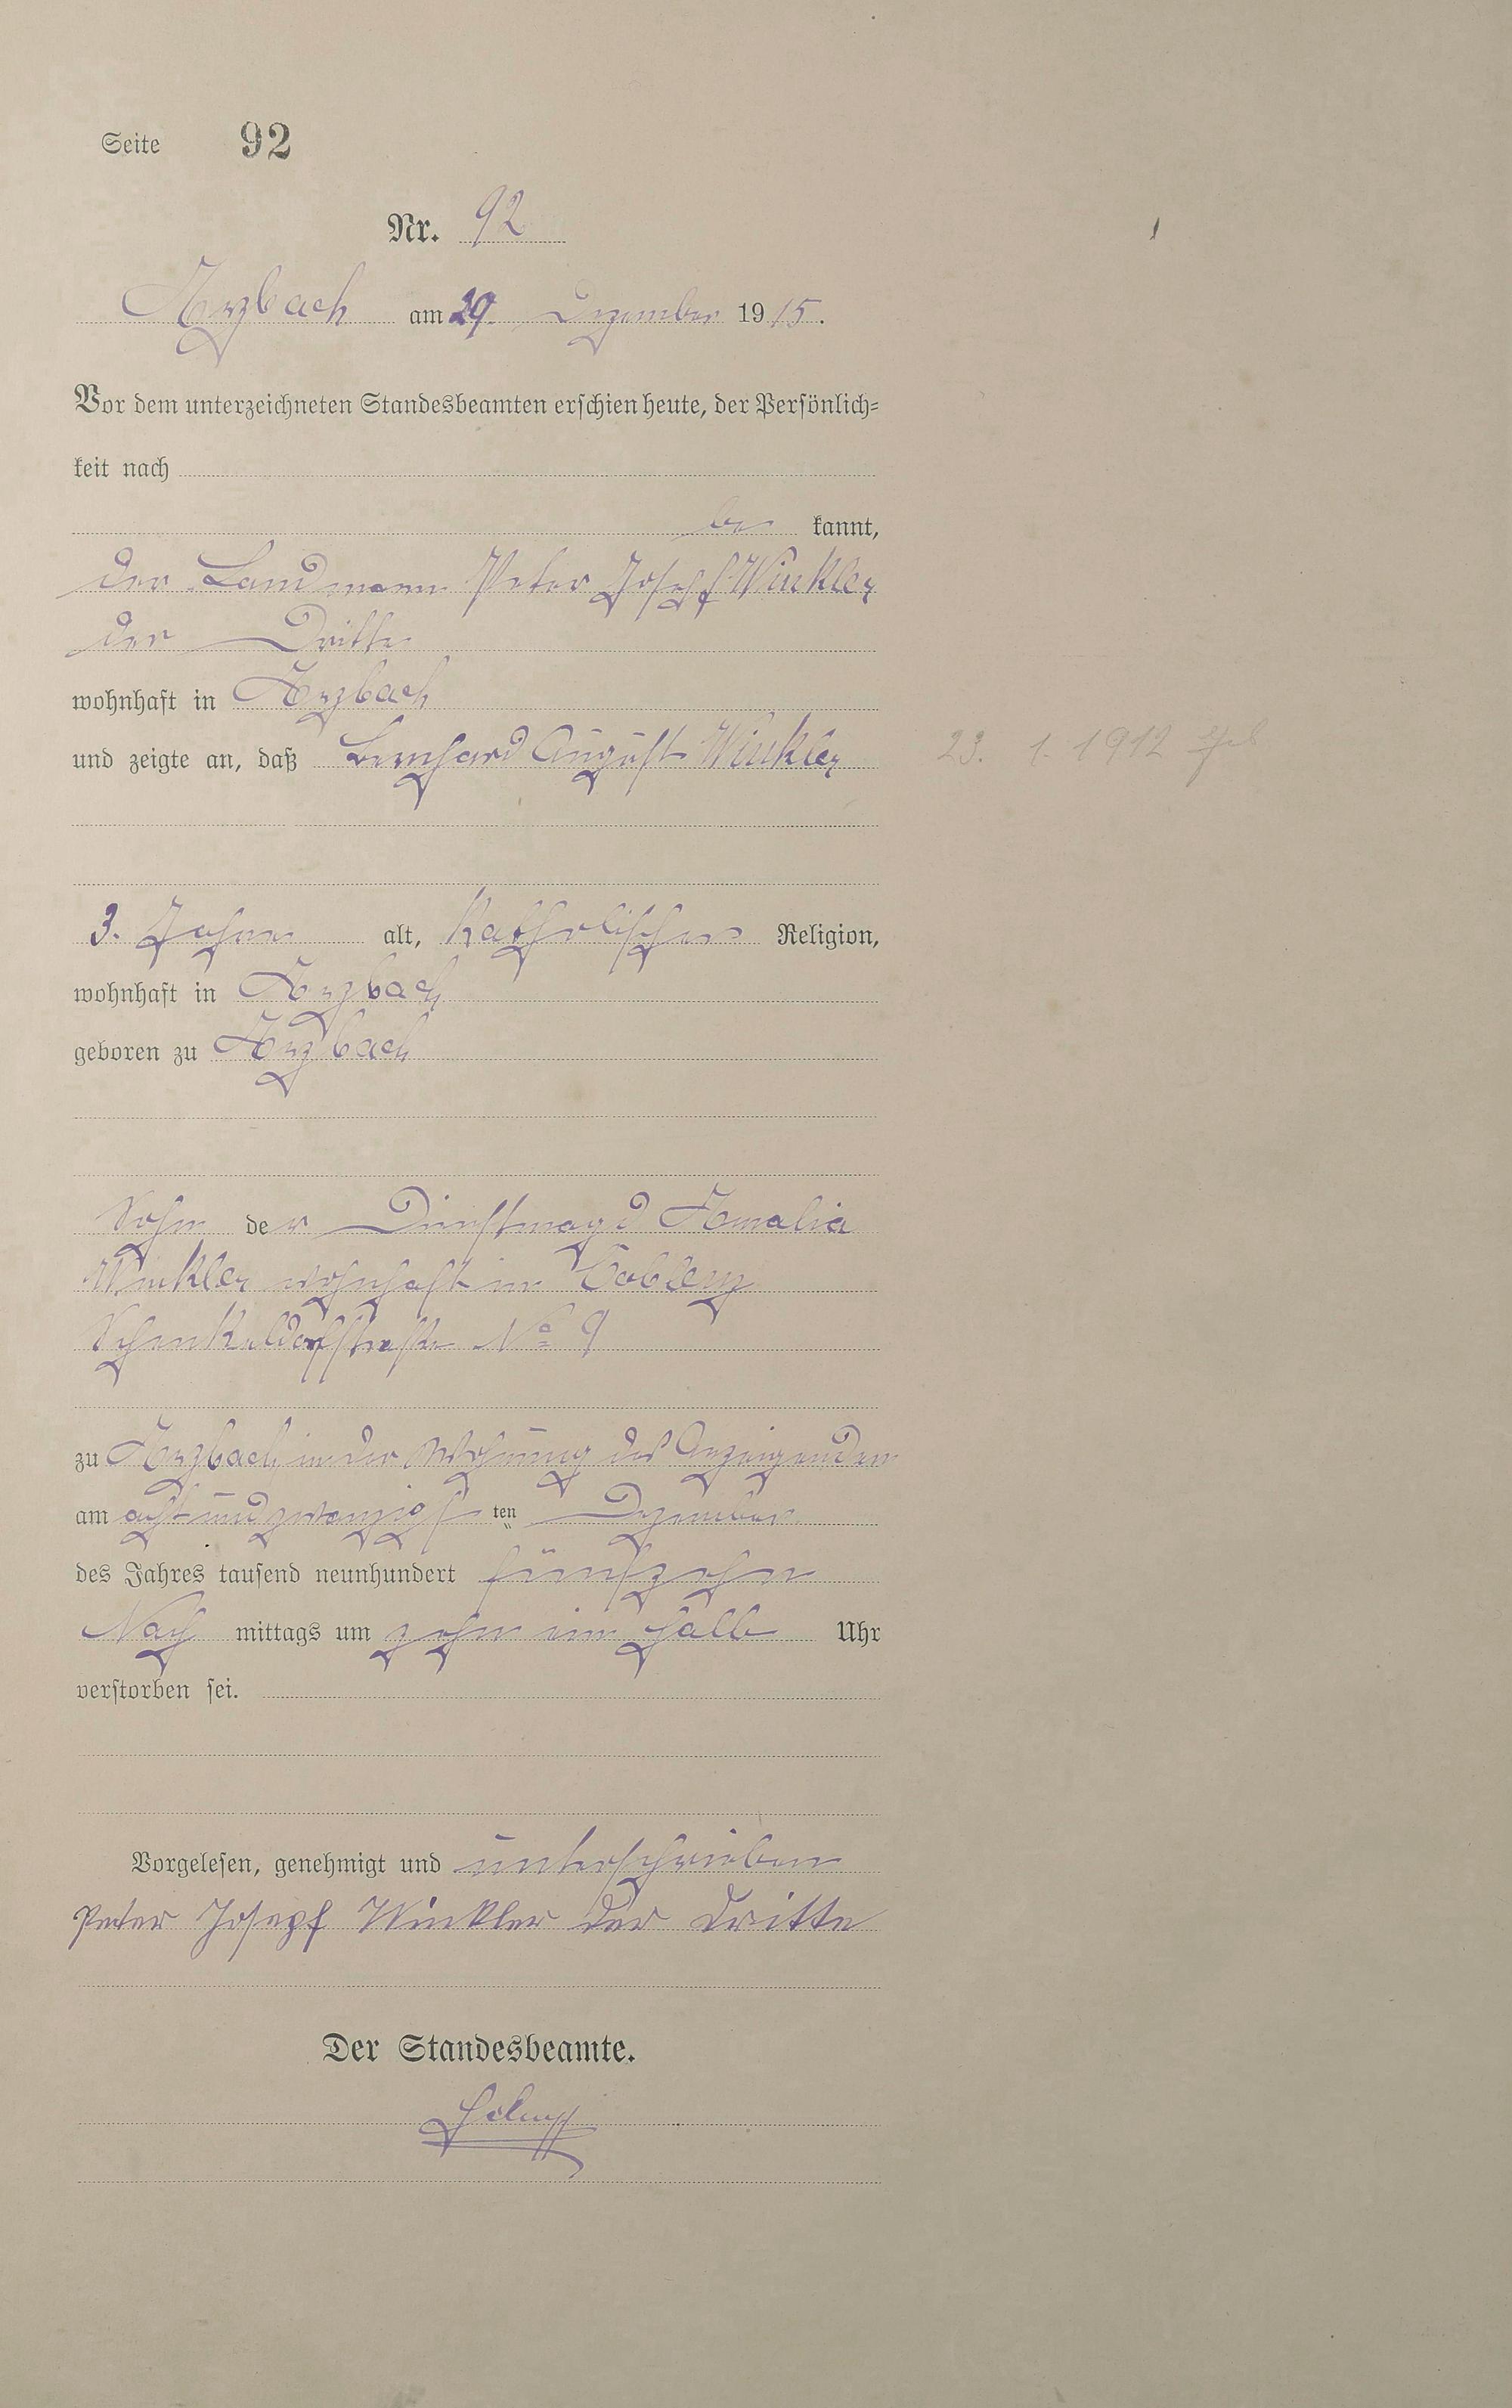 Seite 92
Nr. 92
Arzbach am 29. Dezember 1915.
Vor dem unterzeichneten Standesbeamten erschien heute, der Persönlich=
keit nach
be kannt,
der Landmann Peter Josepf Winkler
der Dritte
wohnhaft in Arzbach
und zeigte an, daß Bernhard August Winkler
23. 1. 1912 geb
3. Jahre alt, Katholischer Religion,
wohnhaft in Arzbach
geboren zu Arzbach
Sohn der Dienstmagd Amalia
Winkler wohnhaft in Coblenz
No 9
zu Arzbach, in der Wohnung des Anzeigenden
am acht und zwanzigs ten Dezember
des Jahres tausend neunhundert fünfzehn
Nach mittags um zehn ein halb Uhr
verstorben sei.
Vorgelesen, genehmigt und unterschrieben
Peter Josepf Winkler der Dritte
Der Standesbeamte.